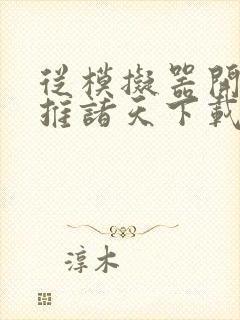 從模擬器開
推諸天下載
淳木